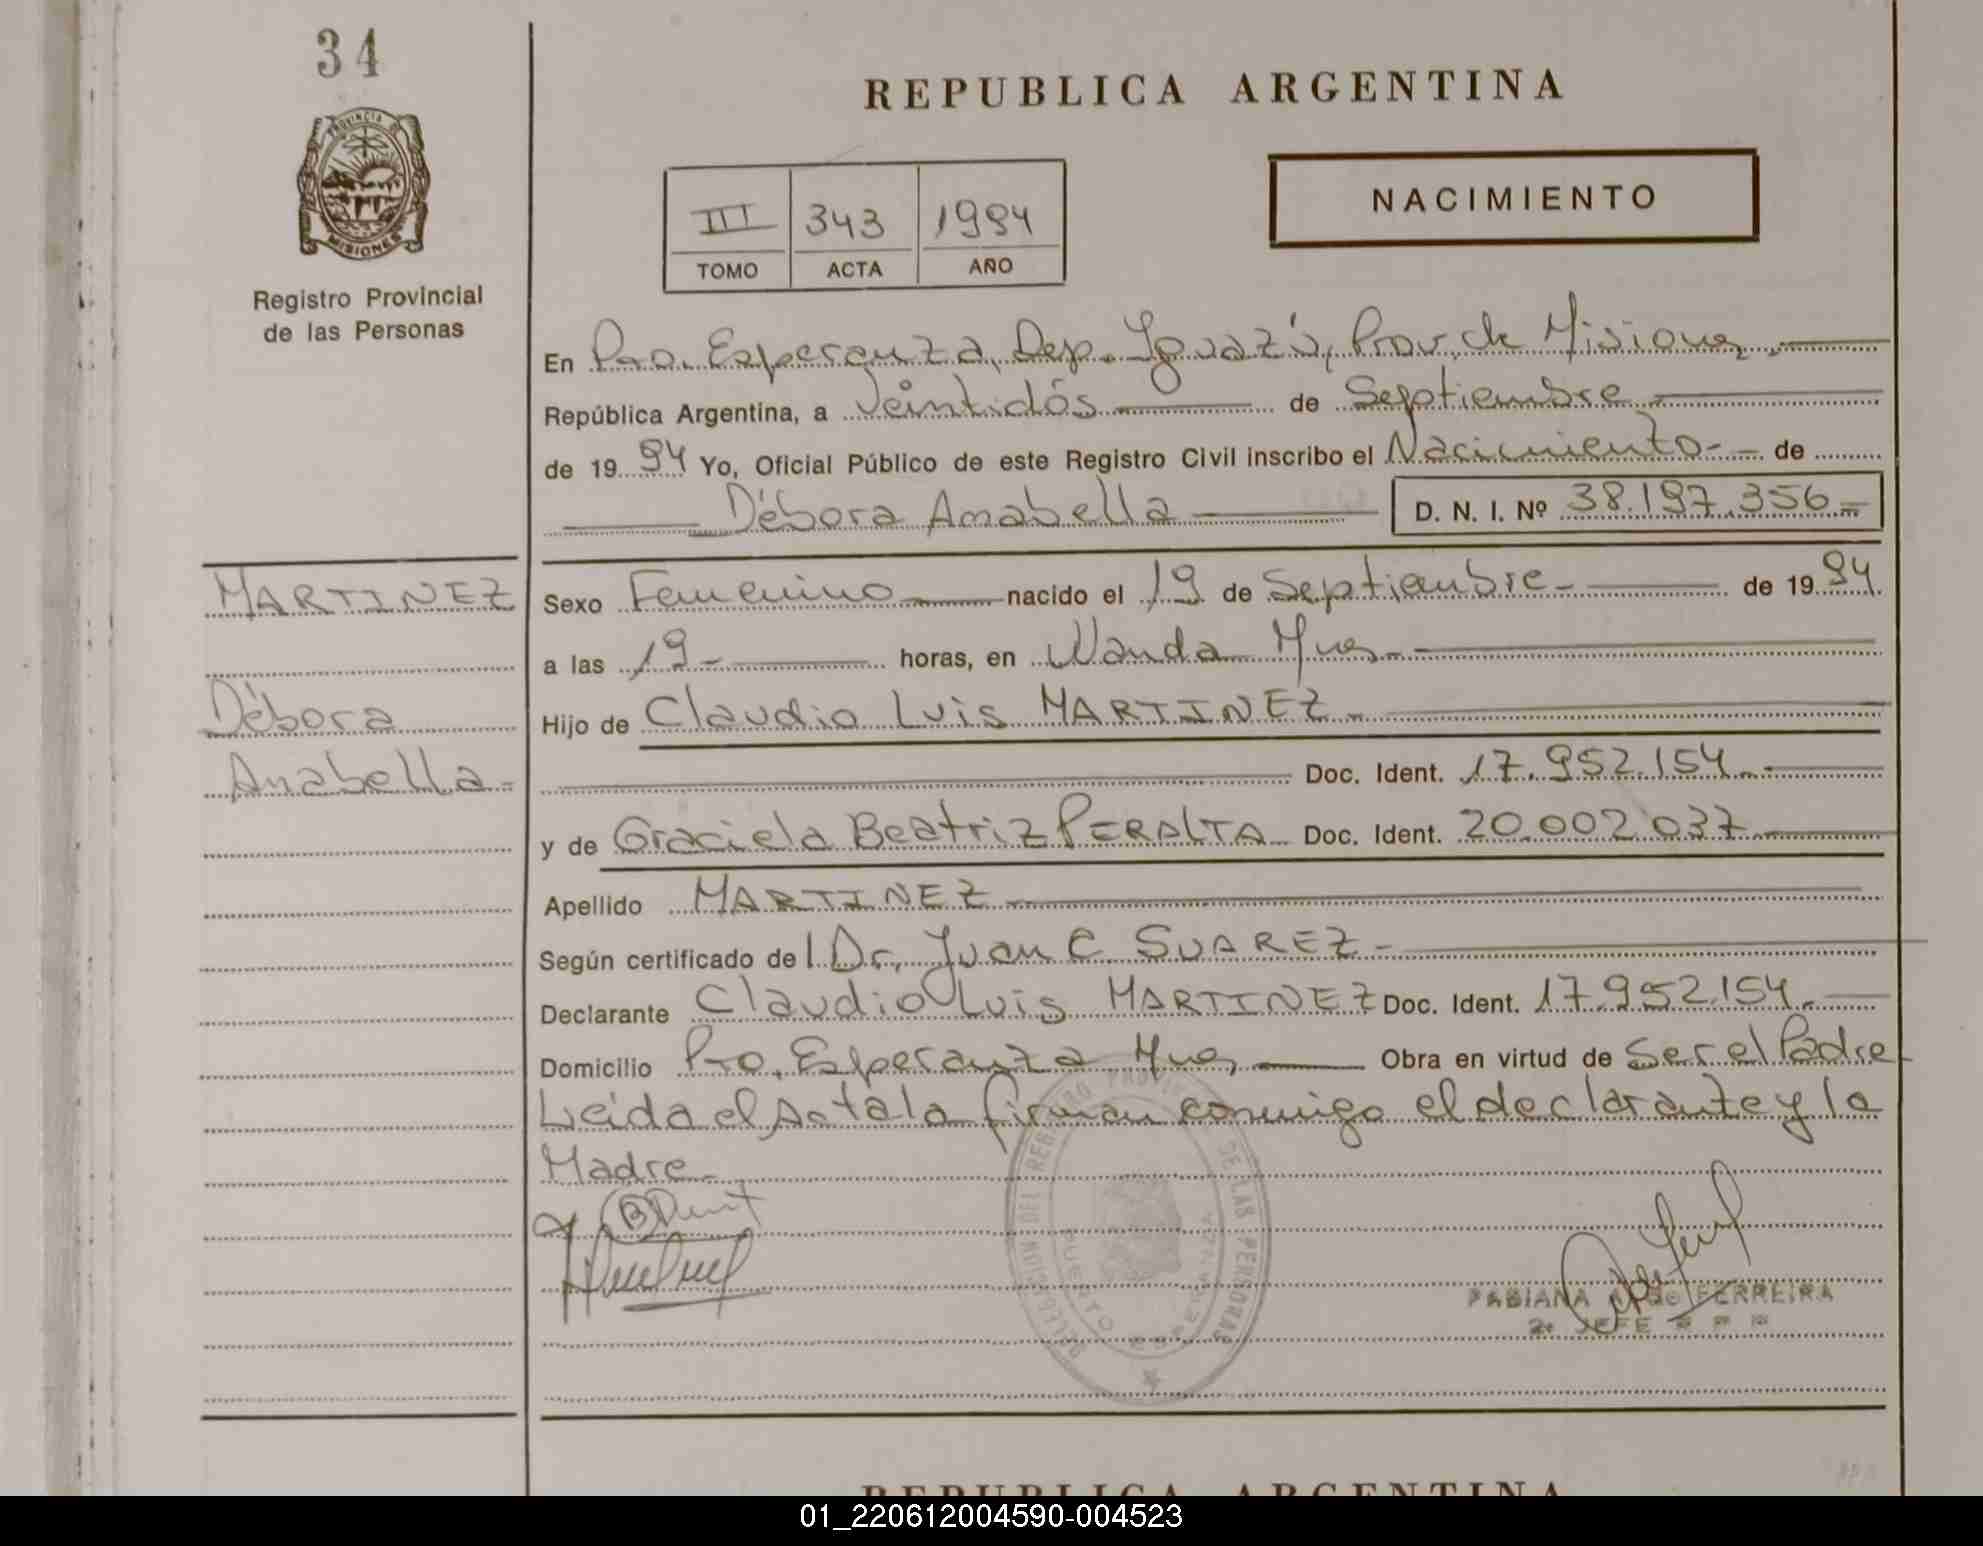 34
PROVINCIA DE
MISIONES
Registro Provincial
de las Personas
REPUBLICA ARGENTINA
III 343 1994
TOMO ACTA AÑO
NACIMIENTO
En Pto. Esperanza, Dep. Iguazú, Prov. de Misiones.
República Argentina, a Veintidós de Septiembre
de 1994 Yo, Oficial Público de este Registro Civil inscribo el Nacimiento- de
Débora Anabella D. N. I. Nº 38.197.356=
MARTINEZ
Débora
Anabella-
Sexo Femenino nacido el 19 de Septiembre- de 1994
a las 19- horas, en Wanda Mnes-
Hijo de Claudio Luis MARTINEZ-
Doc. Ident. 17.952.154.-
y de Graciela Beatriz PERALTA Doc. Ident. 20.002.037-
Apellido MARTINEZ
Según certificado del Dr. Juan C. SUAREZ-
Declarante Claudio Luis MARTINEZ Doc. Ident. 17.952.154.-
Domicilio Pto. Esperanza Mnes Obra en virtud de Ser el Padre
Leída el Acta la firman conmigo el declarante y la
Madre-
DELEGACION DEL REGISTRO PROVINCIAL DE LAS PERSONAS
PUERTO ESPERANZA
FABIANA de FERREIRA
2º JEFE R P P
REPUBLICA ARGENTINA
01_220612004590-004523